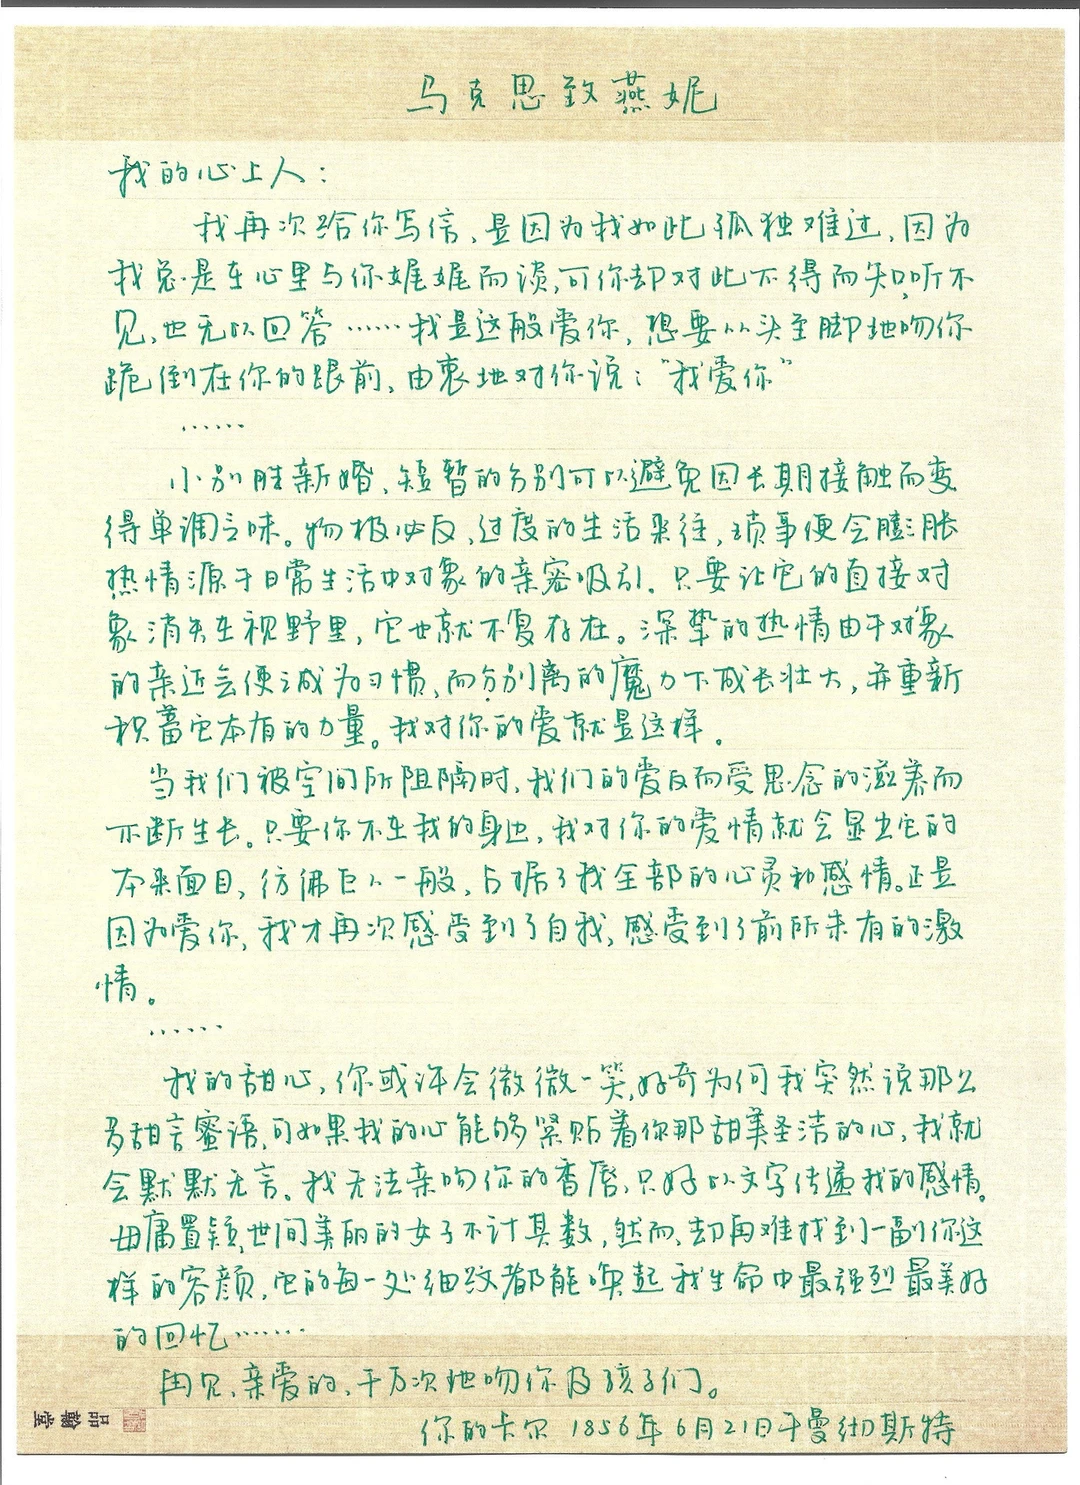 马克思致燕妮
我的心上人：
我再次给你写信，是因为我如此孤独难过，因为
我总是在心里与你娓娓而谈，可你却对此不得而知，听不
见，也无以回答……我是这般爱你，想要从头至脚地吻你
跪倒在你的跟前，由衷地对你说：“我爱你”
……
小别胜新婚，短暂的分别可以避免因长期接触而变
得单调乏味。物极必反，过度的生活来往，琐事便会膨胀
热情源于日常生活中对象的亲密吸引。只要让它的直接对
象消失在视野里，它也就不复存在。深挚的热情由于对象
的亲近会便减为习惯，而分别离的魔力下成长壮大，并重新
积蓄它本有的力量。我对你的爱就是这样。
当我们被空间所阻隔时，我们的爱反而受思念的滋养而
不断生长。只要你不在我的身边，我对你的爱情就会显出它的
本来面目，彷佛巨人一般，占据了我全部的心灵和感情。正是
因为爱你，我才再次感受到了自我，感受到了前所未有的激
情。
……
我的甜心，你或许会微微一笑，好奇为何我突然说那么
多甜言蜜语，可如果我的心能够紧贴着你那甜美圣洁的心，我就
会默默无言。我无法亲吻你的香唇，只好以文字传递我的感情。
毋庸置疑，世间美丽的女子不计其数，然而，却再难找到一副你这
样的容颜，它的每一处细纹都能唤起我生命中最强烈最美好
的回忆……
再见，亲爱的，千万次地吻你及孩子们。
你的卡尔 1856年6月21日于曼彻斯特
品翰堂